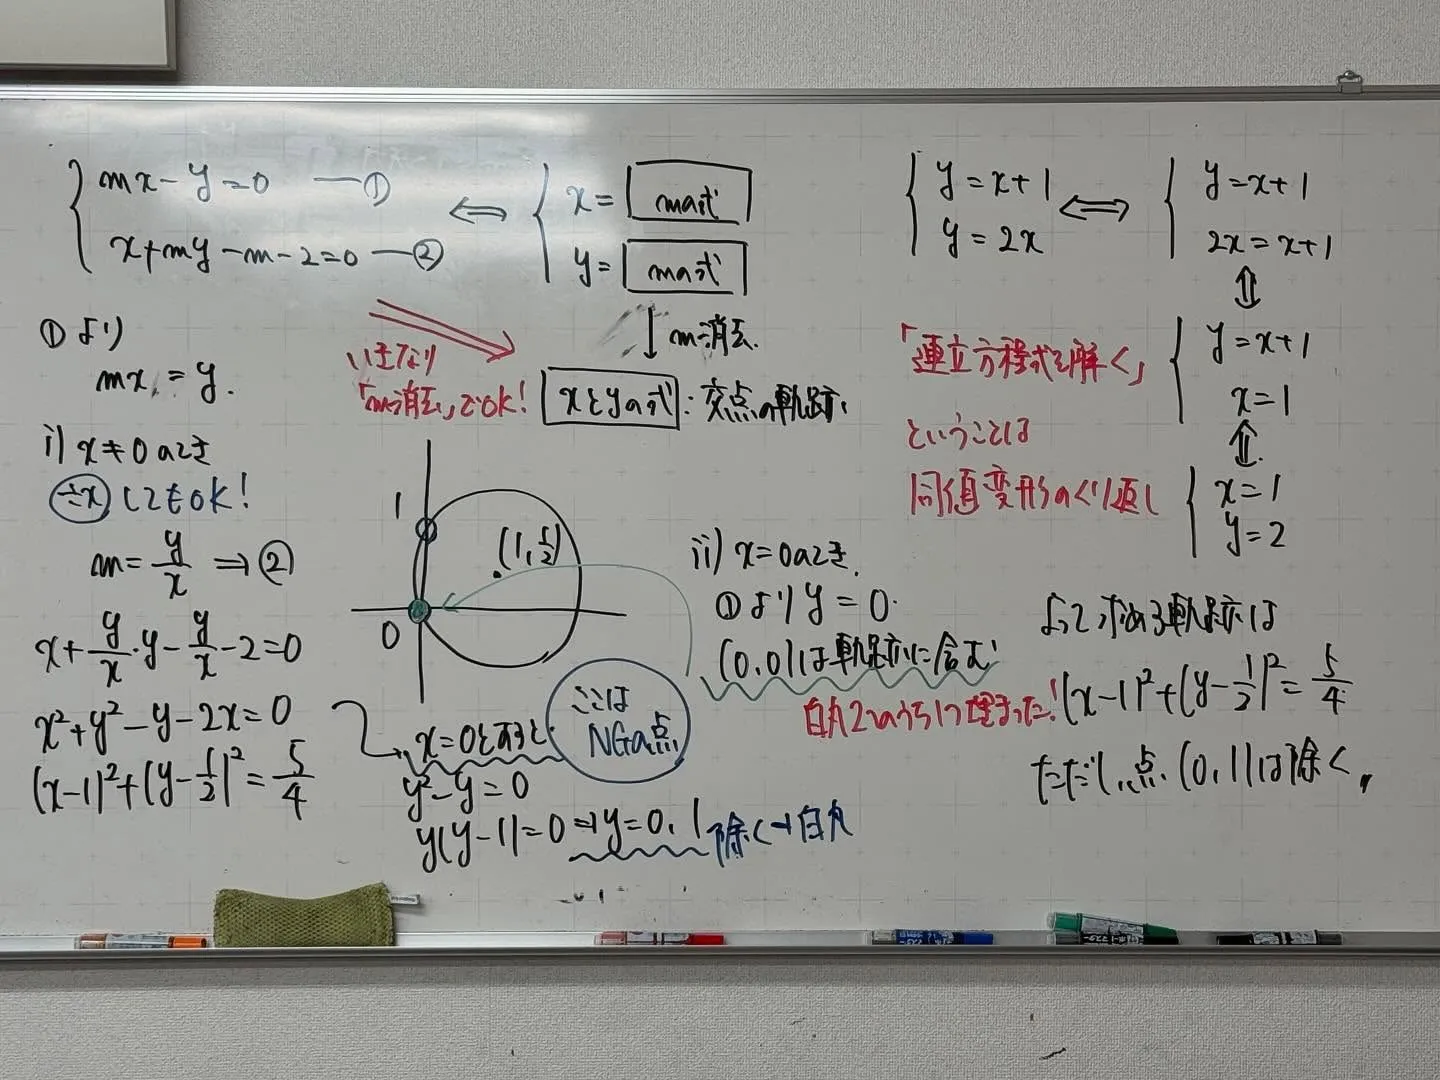 mx-y=0 ―①
x+my-m-2=0 ―②
⇔
x= mの式
y= mの式
↓ m消去.
いきなり
「m消去」でOK!
xとyの式 : 交点の軌跡
①より
mx = y.
i) x≠0のとき
÷x してもOK!
m= y/x ⇒ ②
x+ y/x ・y- y/x -2=0
x²+y²-y-2x=0
(x-1)²+(y- 1/2)²= 5/4
1
(1, 1/2)
0
x=0とすると
ここは
NGの点
y²-y=0
y(y-1)=0→y=0, 1 除く→白丸
ii) x=0のとき.
①よりy=0.
(0,0)は軌跡に含む
白丸2つのうち1つ埋まった!
y=x+1
y=2x
⇔
y=x+1
2x=x+1
⇕
y=x+1
x=1
⇕
x=1
y=2
「連立方程式を解く」
ということは
同値変形のくり返し
よって求める軌跡は
(x-1)²+(y- 1/2)²= 5/4
ただし,点(0,1)は除く,